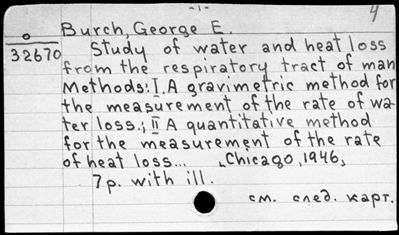 -1-
4
Burch, George E.
0
32670
Study of water and heat loss
from the respiratory tract of man
Methods: I. A gravimetric method for
the measurement of the rate of wa-
ter loss.; II A quantitative method
for the measurement of the rate
of heat loss... Chicago, 1946,
7p. with ill.
см. след. карт.